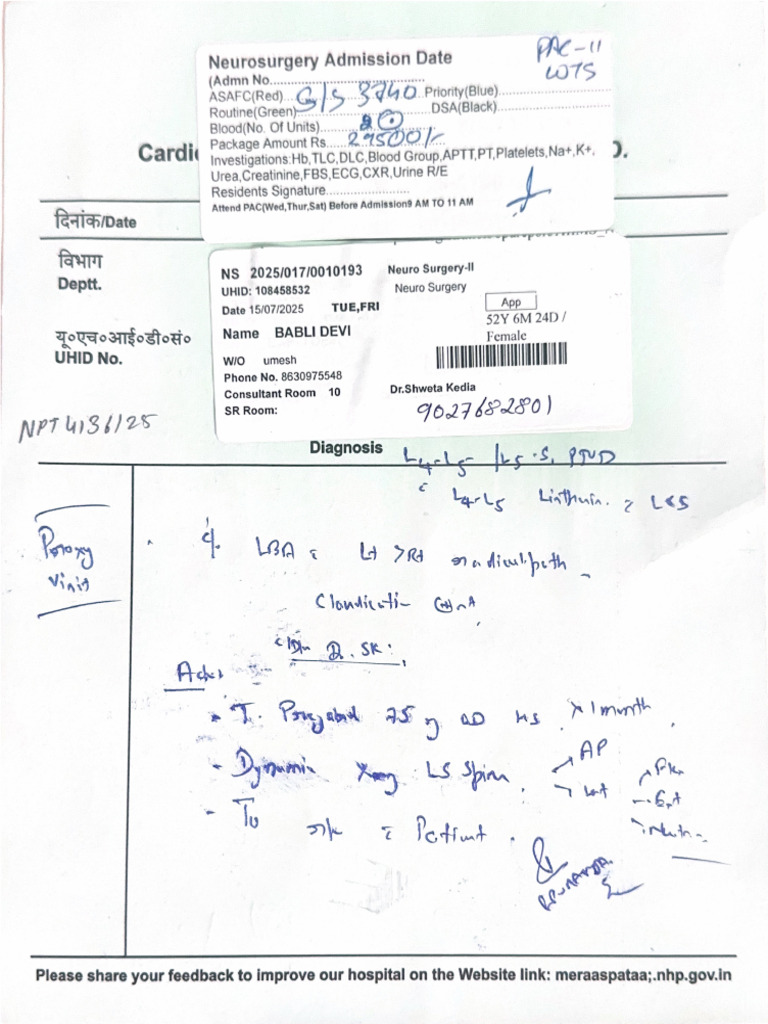 Neurosurgery Admission Date
PAC-11
(Admn No.
ASAFC(Red) G/S 3740 Priority(Blue)
Routine(Green) DSA(Black)
Blood(No. Of Units)
Package Amount Rs. 29500/-
Cardio
O.
Investigations:Hb,TLC,DLC,Blood Group,APTT,PT,Platelets,Na+,K+,
Urea,Creatinine,FBS,ECG,CXR,Urine R/E
Residents Signature
Attend PAC(Wed,Thur,Sat) Before Admission9 AM TO 11 AM
दिनांक/Date
विभाग
Deptt.
यू०एच०आई०डी०सं०
UHID No.
NS 2025/017/0010193 Neuro Surgery-II
UHID: 108458532 Neuro Surgery
Date 15/07/2025 TUE,FRI App
52Y 6M 24D /
Female
Name BABLI DEVI
W/O umesh
Phone No. 8630975548
Consultant Room 10 Dr.Shweta Kedia
SR Room: 9027682801
NPT 4136/25
Diagnosis L4-L5 /L5-S1 PIVD
L4-L5
Proxy
Visit
c/o LBA c Lt >Rt
T. 75 mg OD HS x 1 month
- Dynamic Xray LS Spine AP
Lat
- To c Patient
Please share your feedback to improve our hospital on the Website link: meraaspataa;.nhp.gov.in